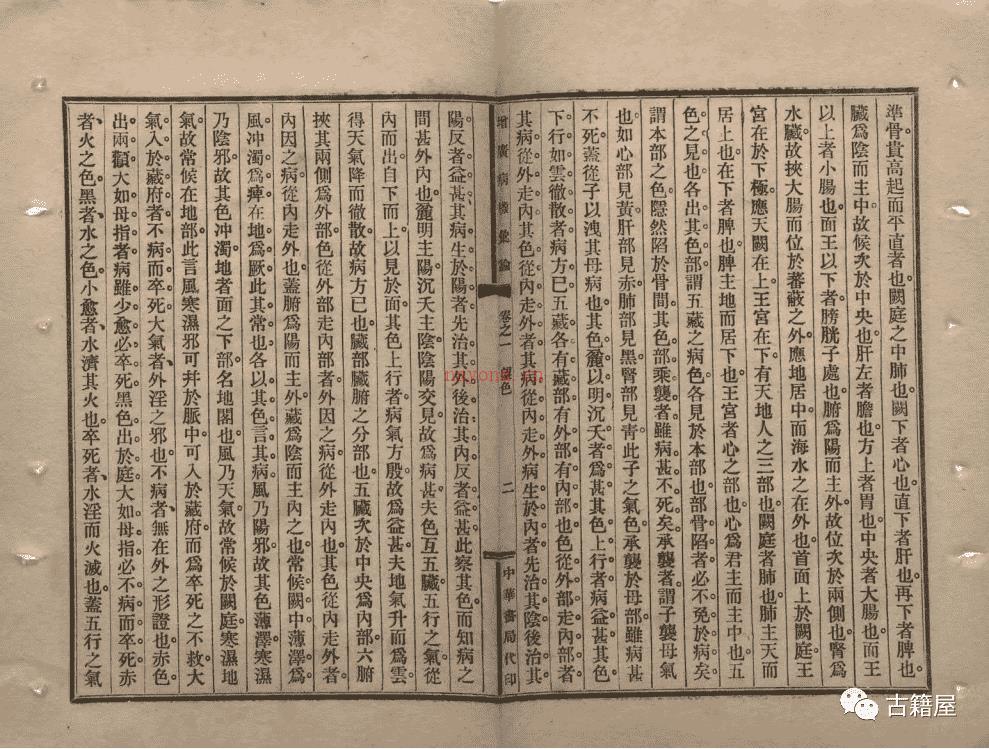 準骨貴高起而平直者也。闕庭之中肺也。闕下者心也。直下者肝也。再下者脾也。
臟爲陰而主中。故候次於中央也。肝左者膽也。方上者胃也。中央者大腸也。而王
以上者小腸也。面王以下者膀胱子處也。腑爲陽而主外。故位次於兩側也。腎爲
水臟。故挾大腸而位於蕃蔽之外。應地居中而海水之在外也。首面上於闕庭。王
宮在於下極。應天闕在上。王宮在下。有天地人之三部也。闕庭者肺也。肺主天而
居上也。在下者脾也。脾主地而居下也。王宮者心之部也。心爲君主而主中也。五
色之見也。各出其色部。謂五藏之病色。各見於本部也。部骨陷者。必不免於病矣。
謂本部之色。隱然陷於骨間。其色部乘襲者。雖病甚不死矣。承襲者。謂子襲母氣
也。如心部見黃。肝部見赤。肺部見黑。腎部見靑。此子之氣色。承襲於母部。雖病甚
不死。蓋從子以洩其母病也。其色麤以明沉夭者爲甚。其色上行者病益甚。其色
下行如雲徹散者病方已。五藏各有藏部。有外部。有內部也。色從外部走內部者。
其病從外走內。其色從內走外者。其病從內走外。病生於內者。先治其陰。後治其
增廣病機彙論 卷之一 色 二 中華書局代印
陽。反者益甚。其病生於陽者。先治其外。後治其內。反者益甚。此察其色而知病之
間甚外內也。麤明主陽。沉夭主陰。陰陽交見。故爲病甚。夫色互五臟五行之氣。從
內而出。自下而上。以見於面。其色上行者。病氣方殷。故爲益甚。夫地氣升而爲雲。
得天氣降而徹散。故病方已也。臟部。臟腑之分部也。五臟次於中央爲內部。六腑
挾其兩側爲外部。色從外部走內部者。外因之病。從外走內也。其色從內走外者。
內因之病。從內走外也。蓋腑爲陽而主外。藏爲陰而主內之也。常候闕中。薄澤爲
風。冲濁爲痺。在地爲厥。此其常也。各以其色言其病。風乃陽邪。故其色薄澤。寒濕
乃陰邪。故其色冲濁。地者面之下部。名地閣也。風乃天氣。故常候於闕庭。寒濕地
氣。故常候在地部。此言風寒濕邪。可幷於脈中。可入於藏府。而爲卒死之不救。大
氣入於藏府者。不病而卒死。大氣者、外淫之邪也。不病者、無在外之形證也。赤色
出兩顴。大如母指者。病雖少愈。必卒死。黑色出於庭。大如母指。必不病而卒死。赤
者、火之色。黑者、水之色。小愈者、水濟其火也。卒死者、水淫而火滅也。蓋五行之氣
古籍屋